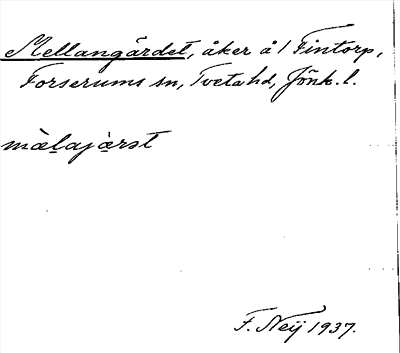 Mellangärdet, åker å 1 Fintorp,
Forserums sn, Tveta hd, Jönk. l.
mälajärst
F. Neij 1937.